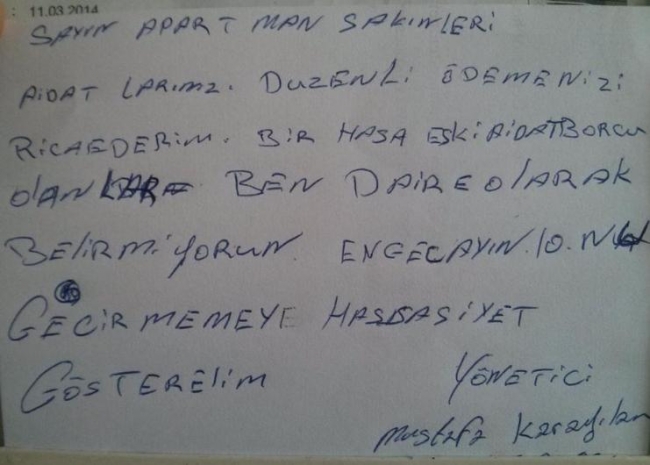 : 11.03.2014
SAYIN APARTMAN SAKINLERİ
AİDAT LARIMZ. DUZENLİ ÖDEMENİZİ
RİCAEDERİM. BİR HASA ESKİ AİDATBORCU
OlANLARA BEN DAİREOlARAK
BELİRMİYORUN. ENGECAYIN.10.NU
GEÇİRMEMEYE HASSASİYET
GÖSTERELİM YÖNETİCİ
mustafa Karayılan